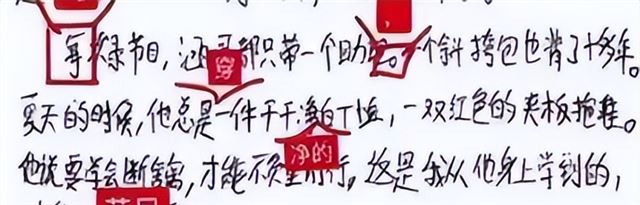 每次录节目，涵哥都只带一个助理。一个斜挎包也背了十多年。
穿
夏天的时候，他总是一件干干净白T恤，一双红色的夹板拖鞋。
净的
他说要学会断舍离，才能不负重前行，这是我从他身上学到的，